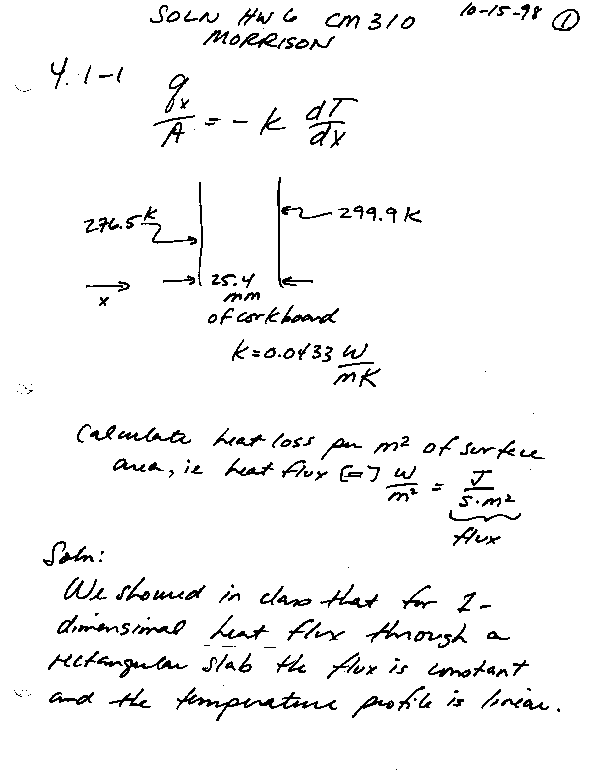 SOLN HW 6 CM 310 10-15-98 ①
MORRISON
4.1-1
qx/A = -k dT/dx
276.5 K
299.9 K
x
25.4
mm
of corkboard
k=0.0433 W/mK
Calculate heat loss per m² of surface
area, ie heat flux [=] W/m² = J/s·m²
flux
Soln:
We showed in class that for 1-
dimensional heat flux through a
rectangular slab the flux is constant
and the temperature profile is linear.